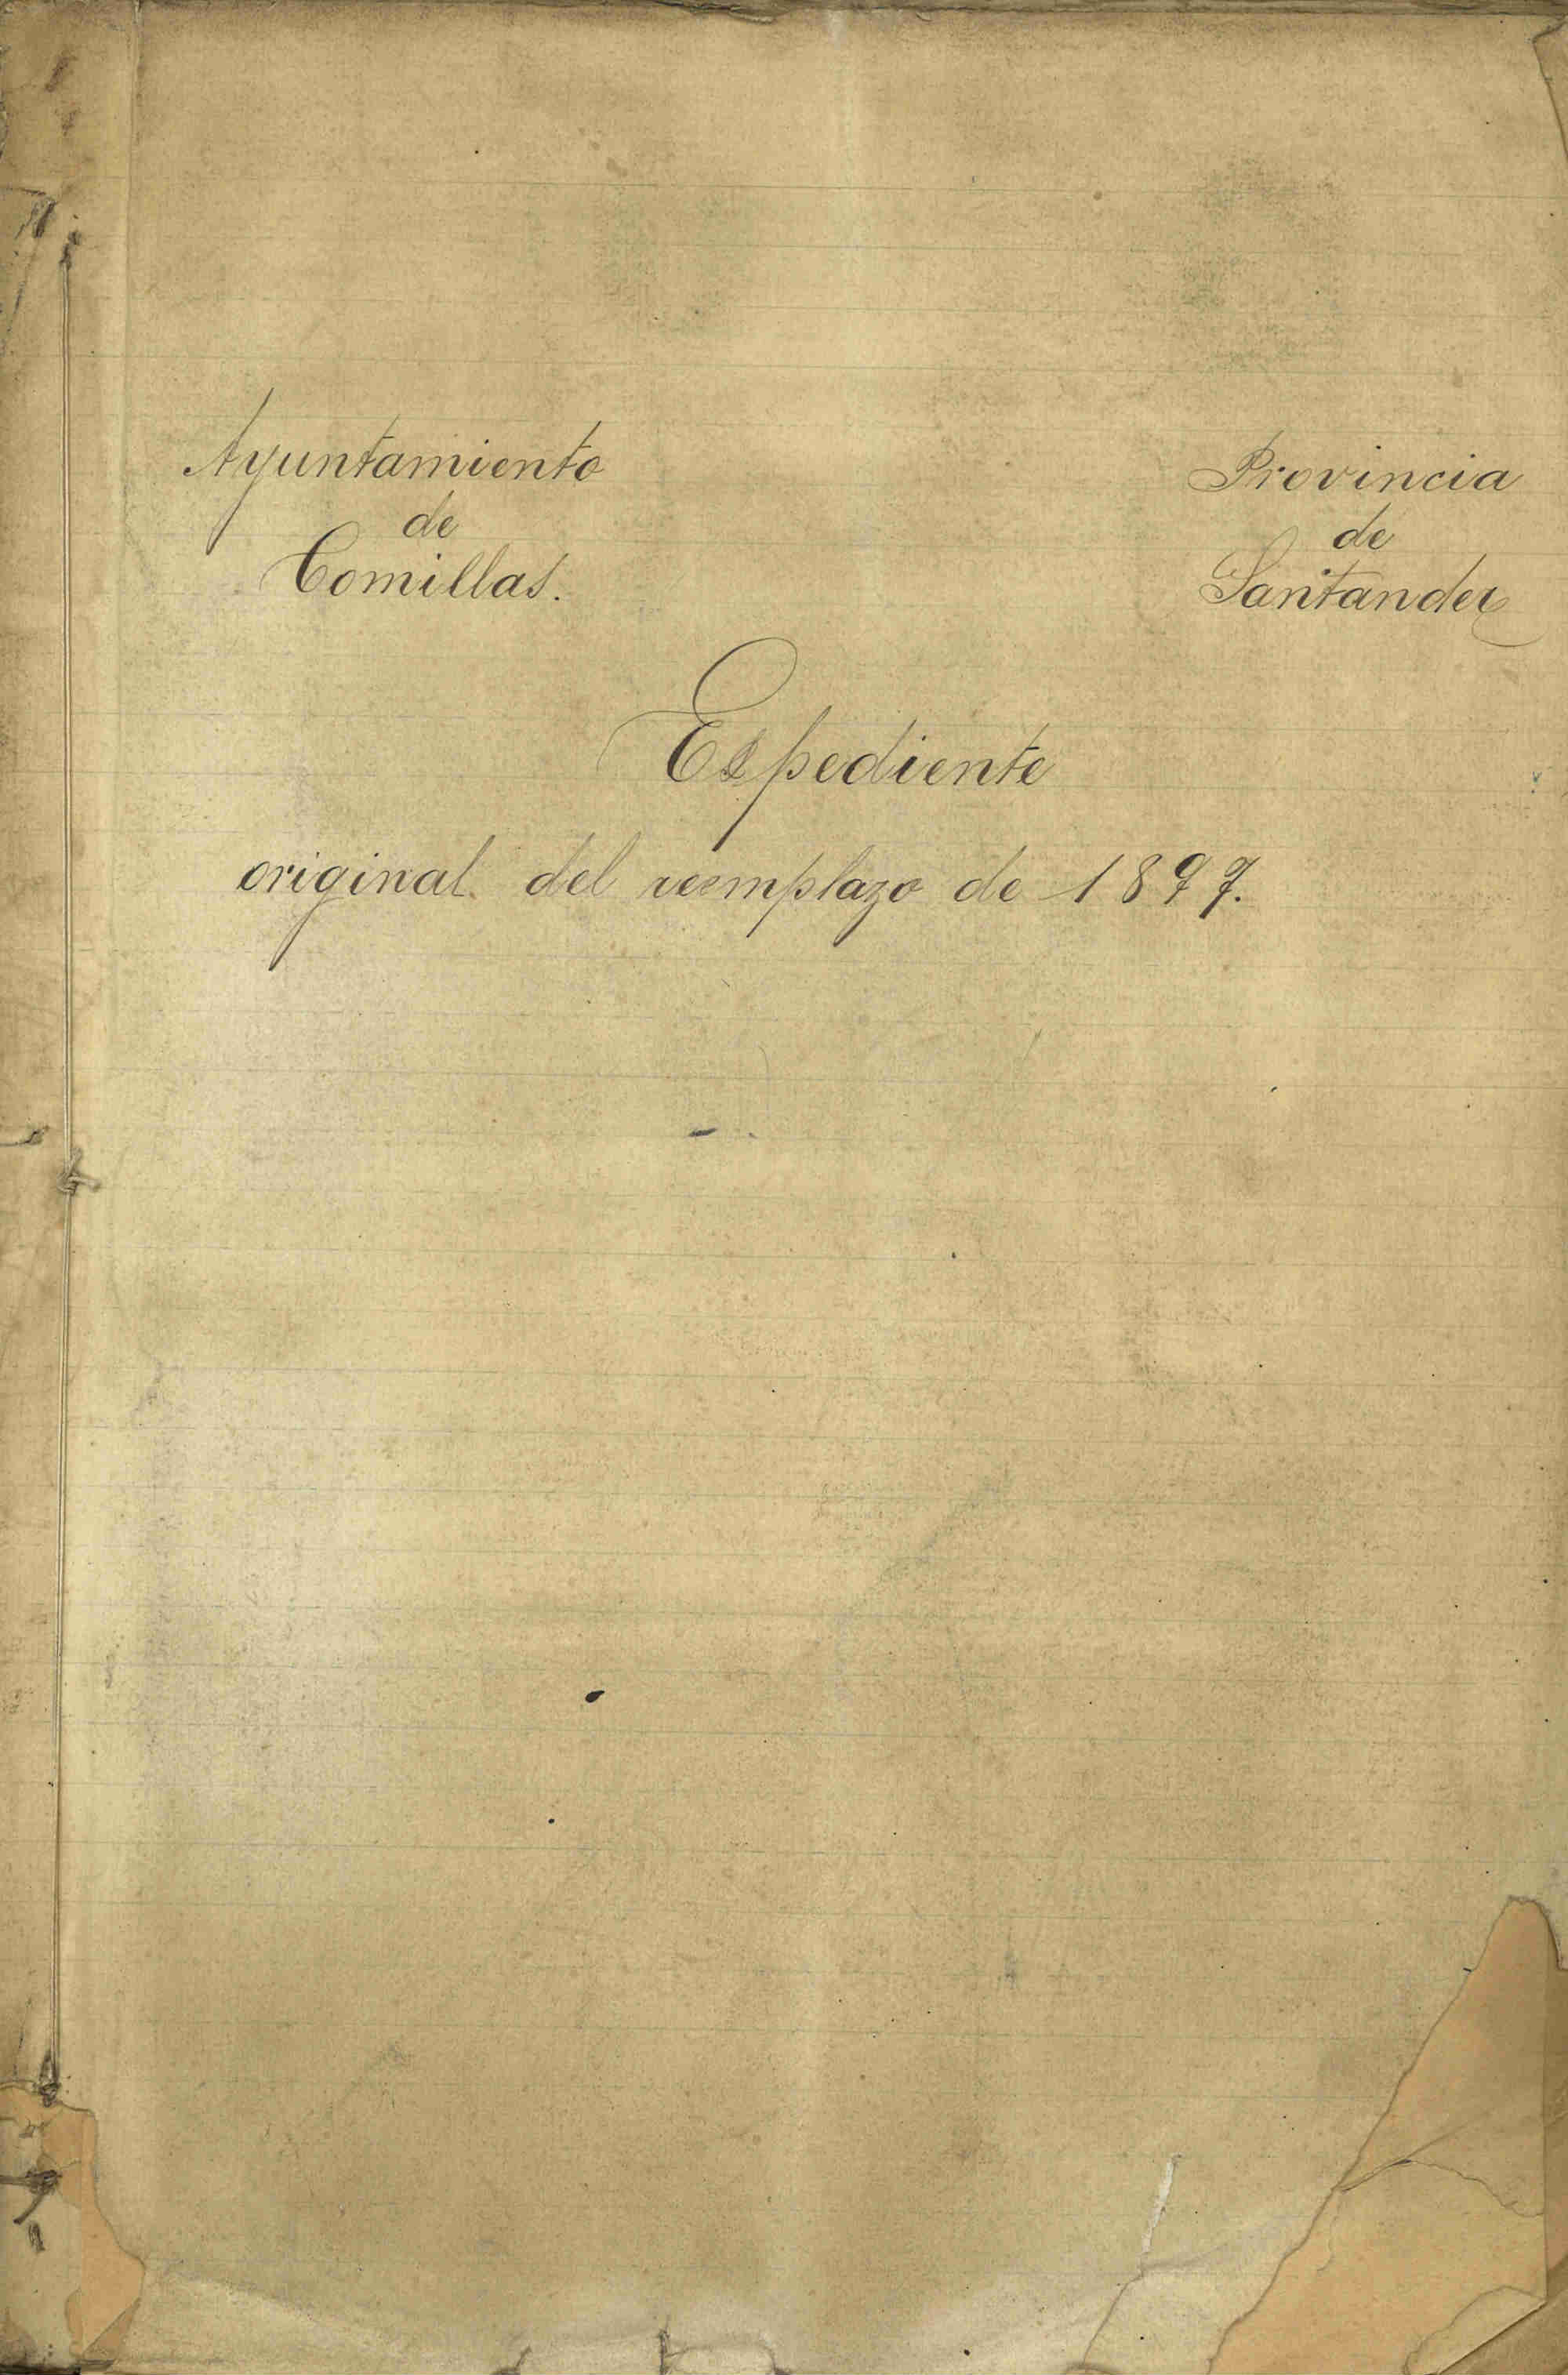 Ayuntamiento
de
Comillas.
Provincia
de
Santander
Expediente
original del reemplazo de 1897.